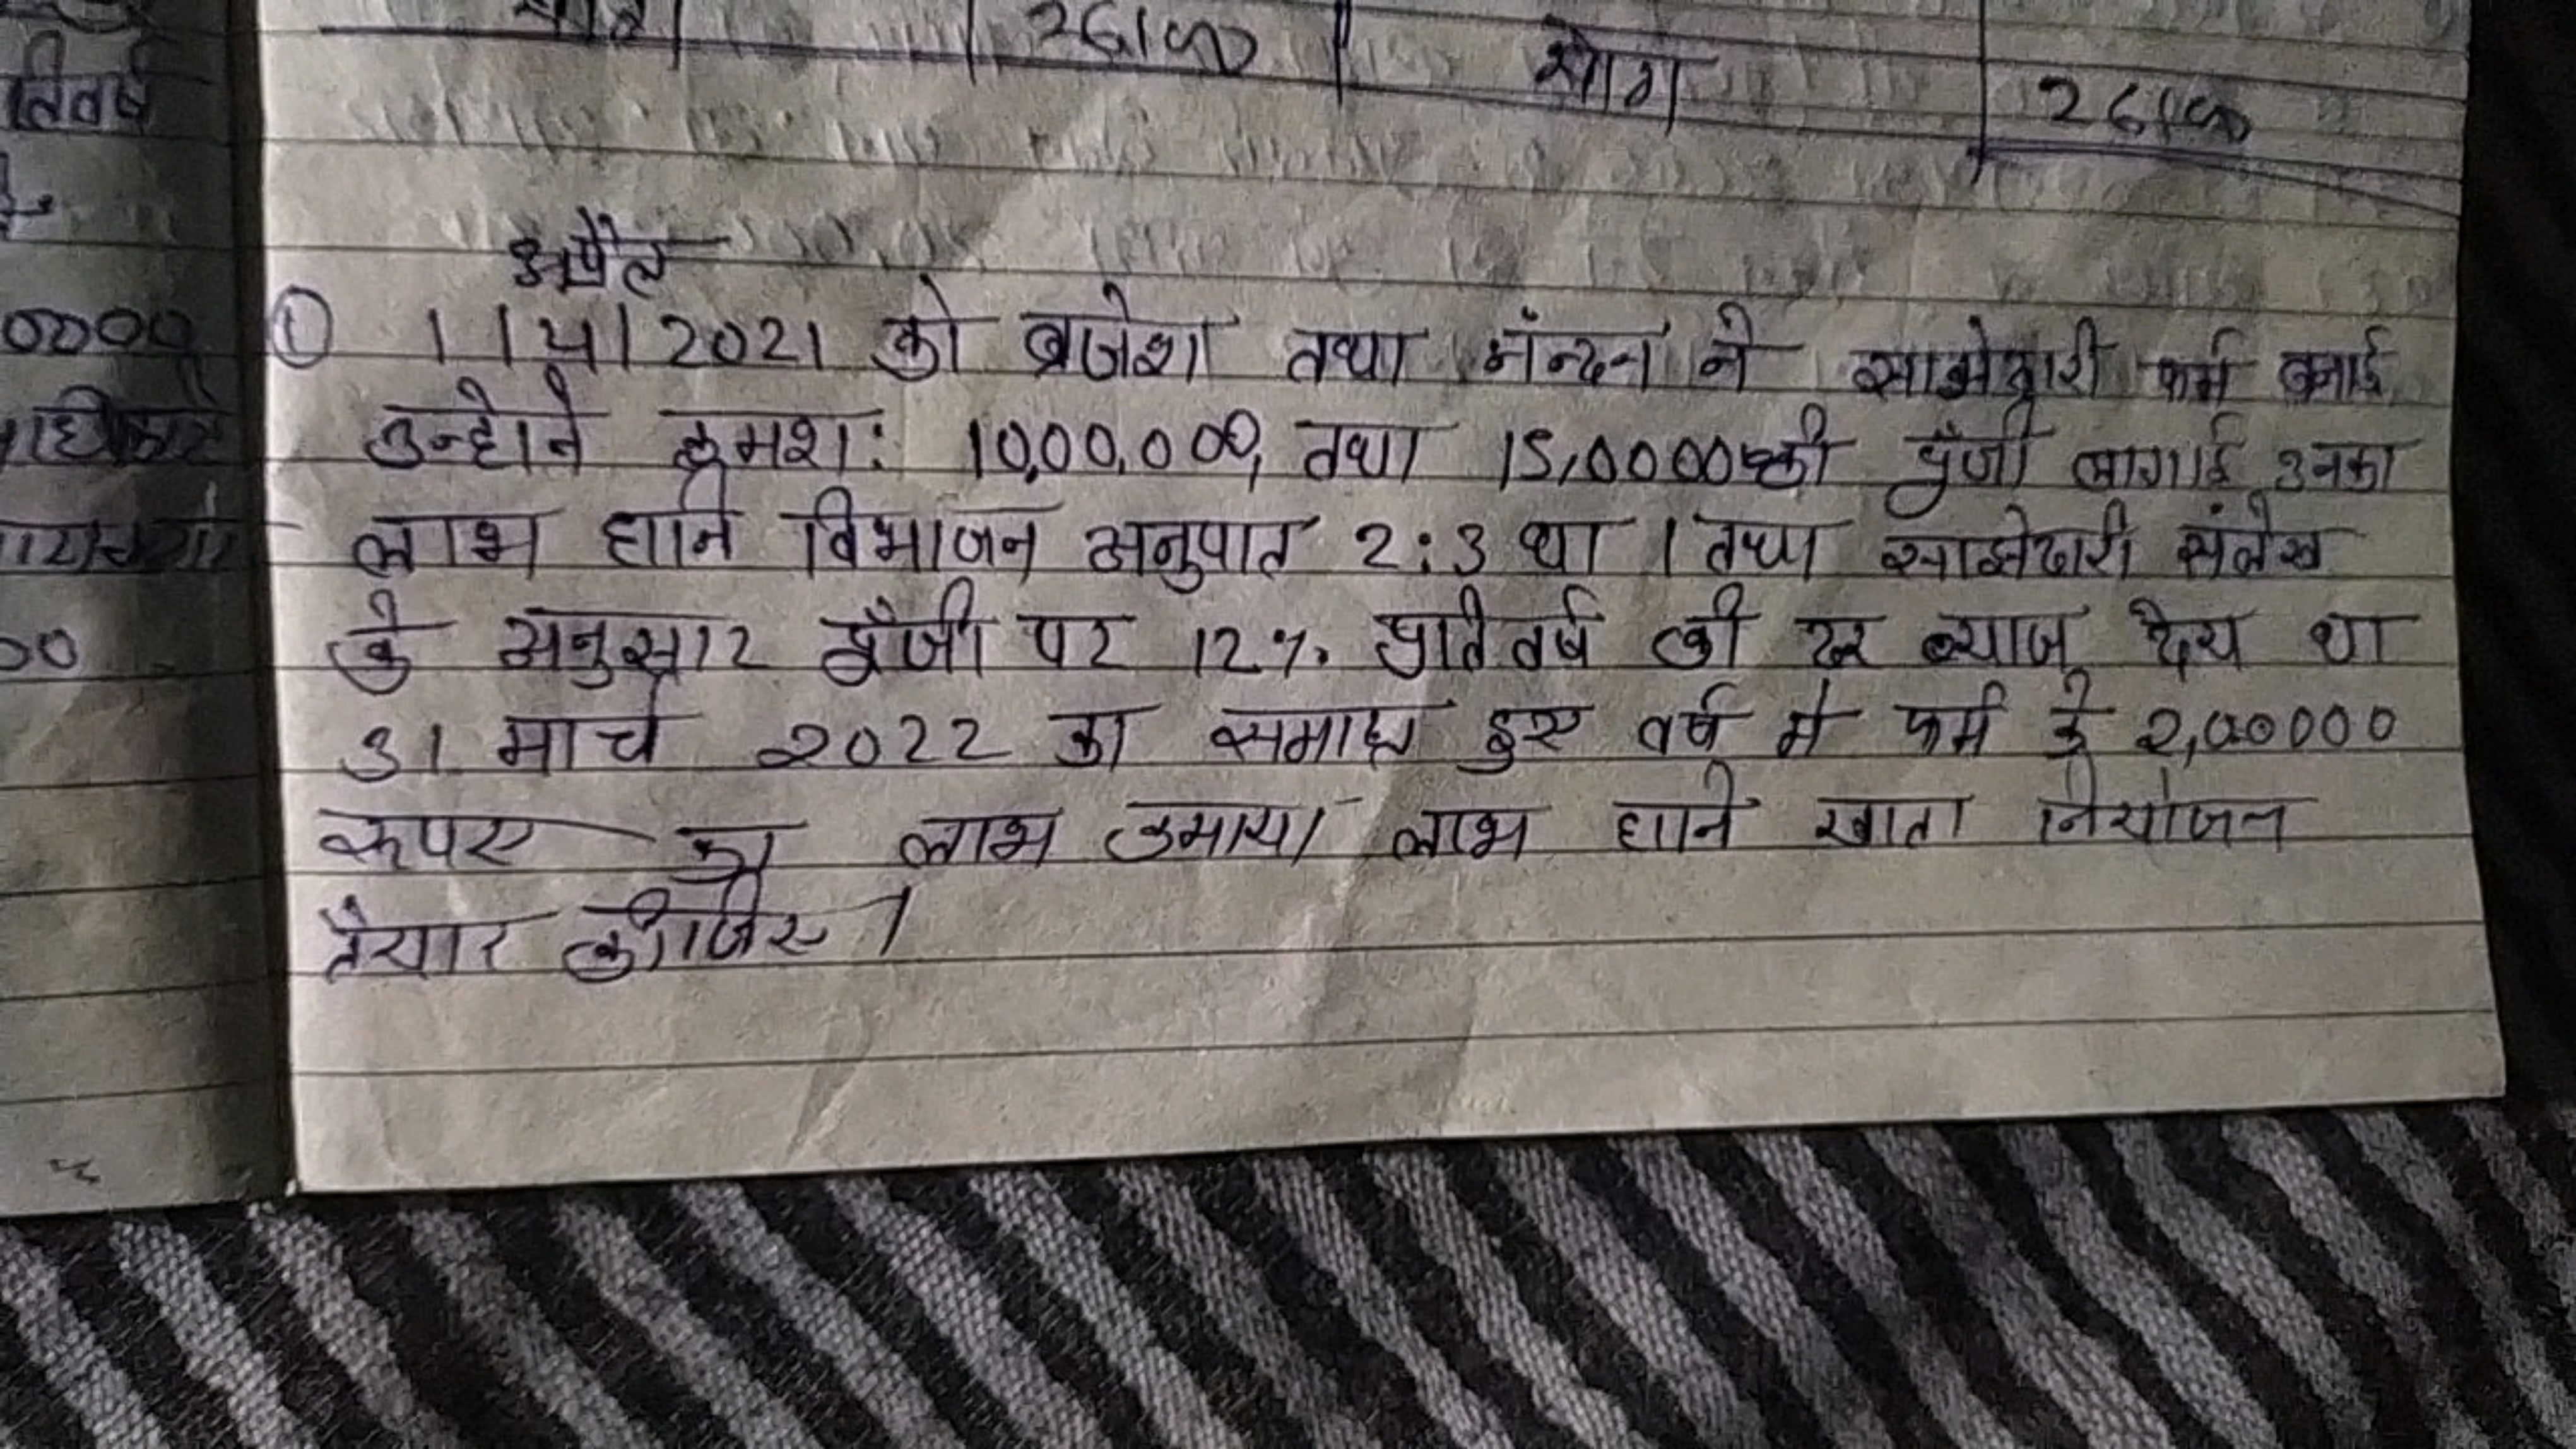 तिवर्ष
26100
योग
26100
0000
00
अप्रैल
① 1 | 4 | 2021 को ब्रजेश तथा नंन्दन ने साझेदारी फर्म बनाई
उन्होने क्रमशः 10,00,000, तथा 15,00000 की पूँजी लागाई उनका
लाभ हानि विभाजन अनुपात 2:3 था । तथा साझेदारी संलेख
के अनुसार पूँजी पर 12% प्रतिवर्ष की दर ब्याज देय था
31 मार्च 2022 का समाप्त हुए वर्ष मे फर्म के 2,00000
रूपए का लाभ कमाया लाभ हानि खाता नियोजन
तैयार कीजिए ।